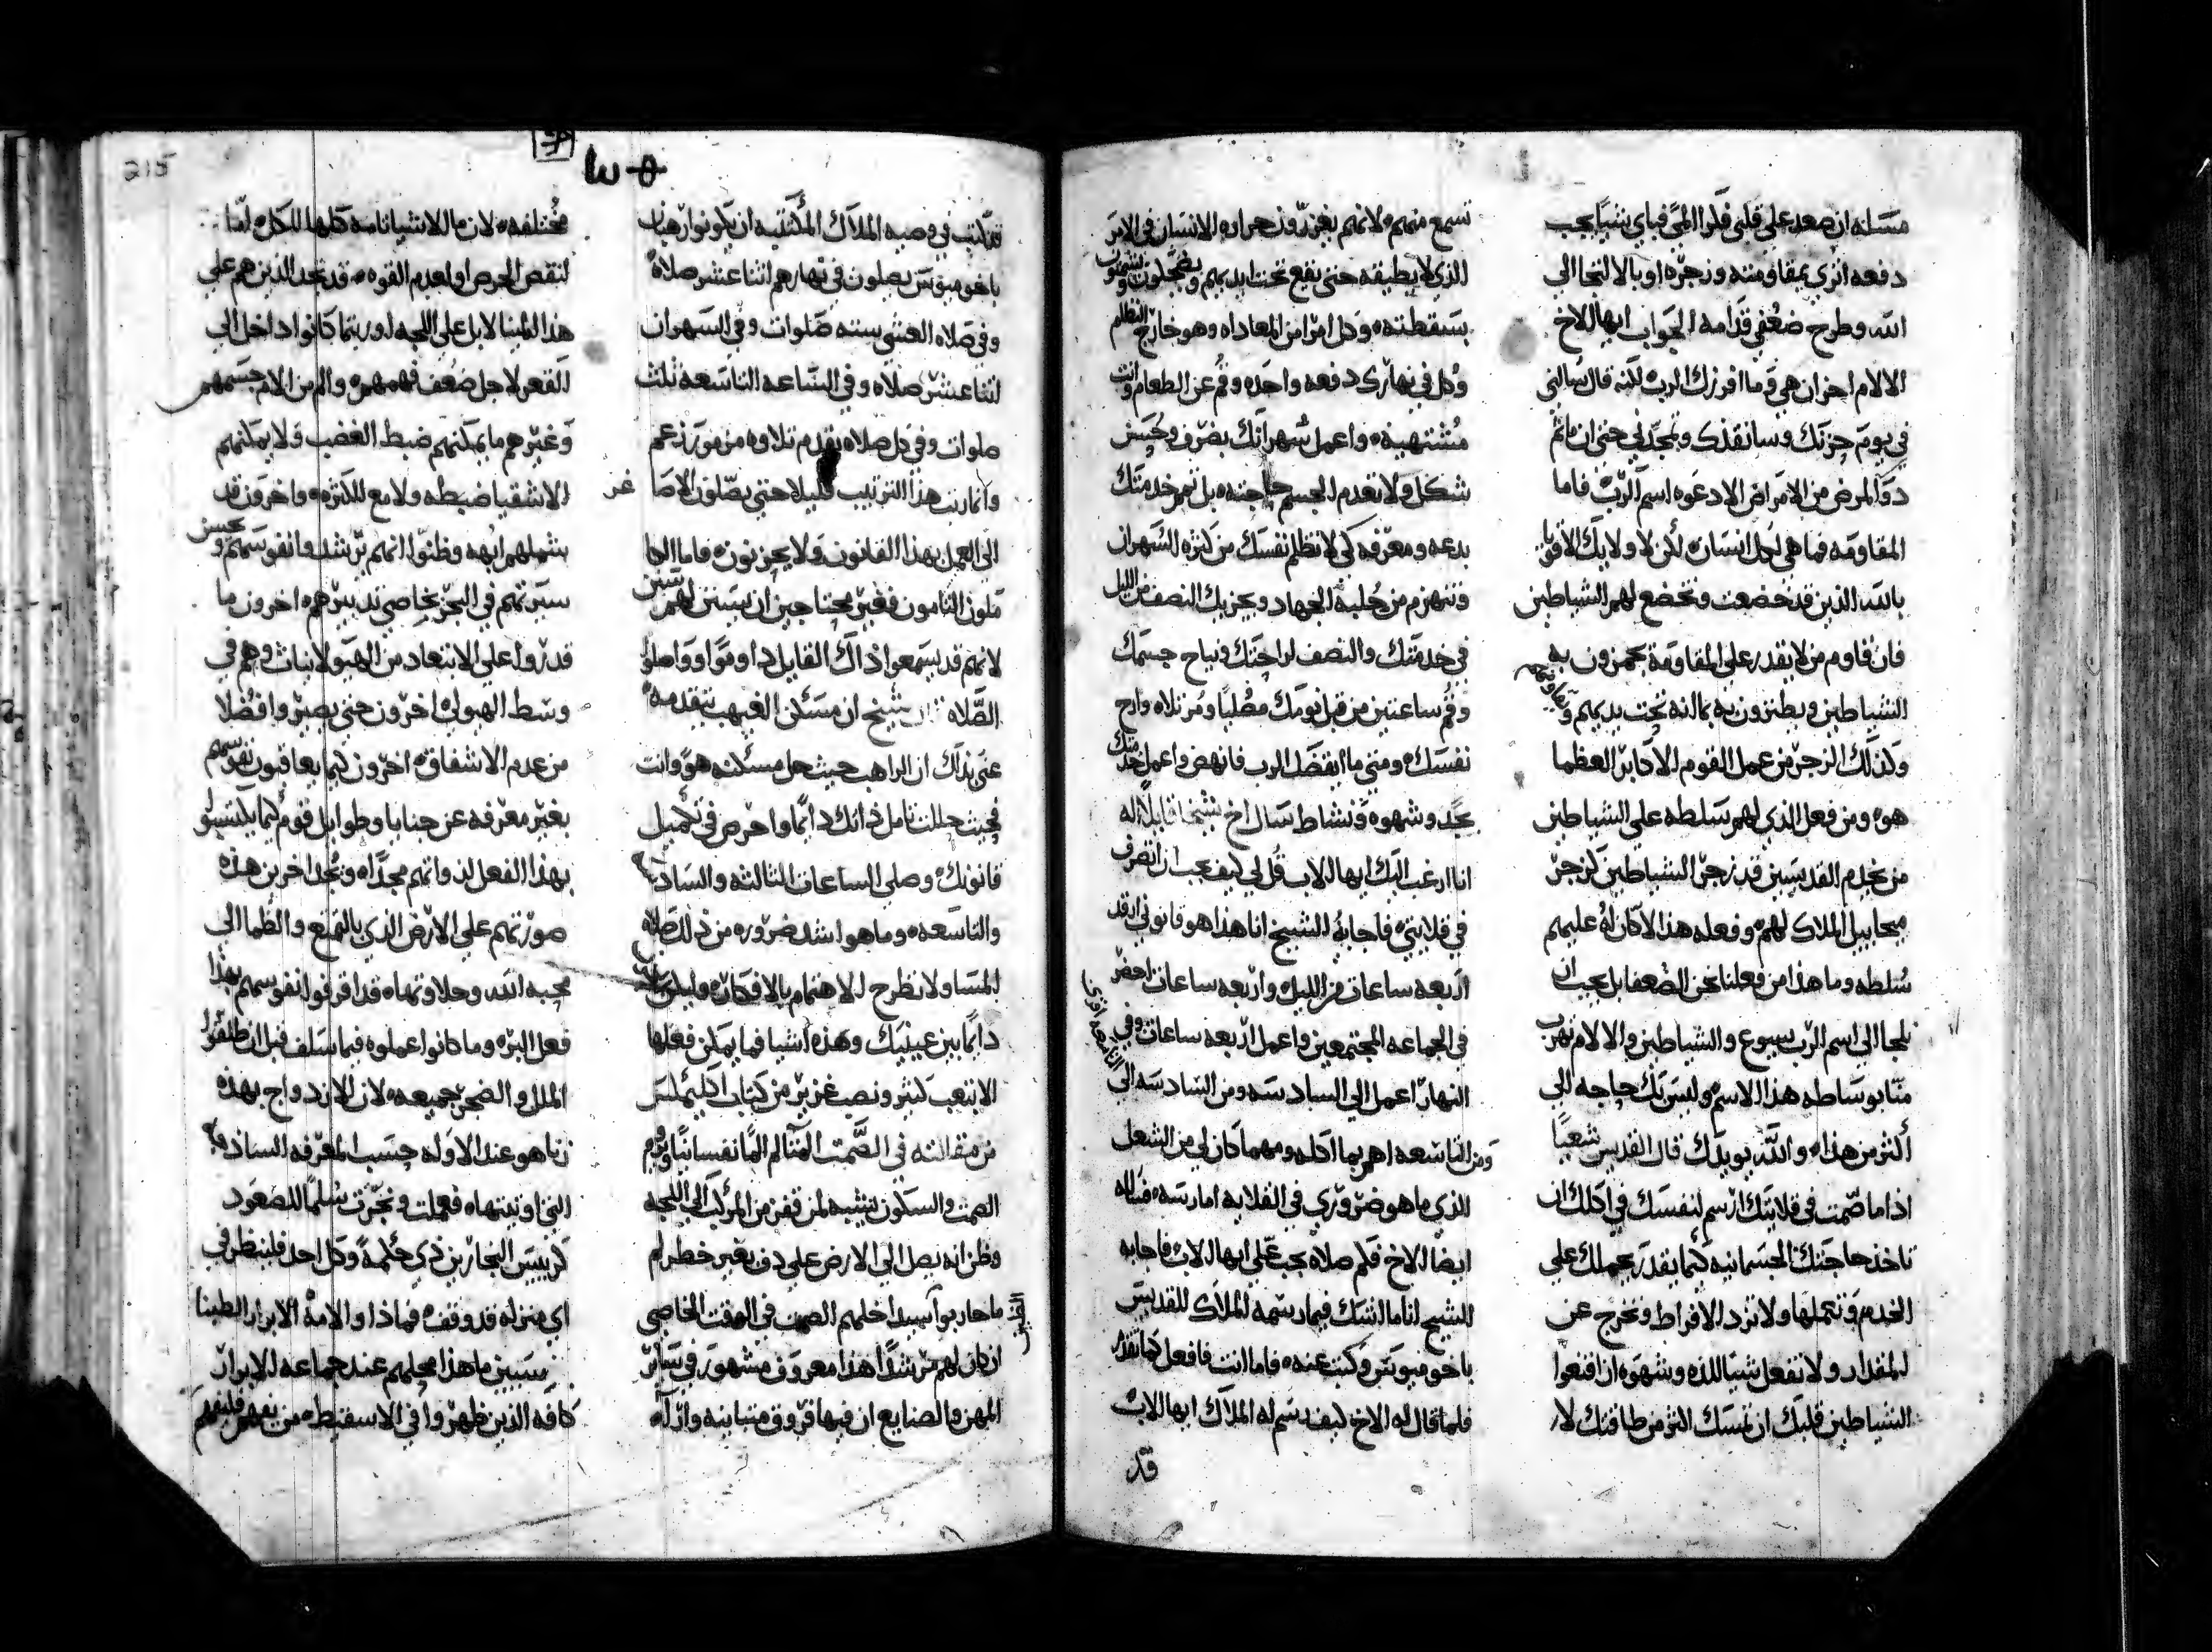 مسله ان صعد على قلبى فكر المى فباى شيا يجب
دفعه اترى بمقاومته وزجره او بالالتجا الى
الله وطرح ضعفى قدامه الجواب ايها الاخ
الالام احزان هى وما افرزك الرب لكنه قال سالنى
فى يوم حزنك وسانقذك وتمجدنى حتى ان ماثم
دوا لمرض من الامراض الا دعوه اسم الرب فاما
المقاومه فما هى لكل انسان لكن لاولايك الاقويا
بالله الذين قد خضعت وتخضع لهم الشياطين
فان قاوم من لا يقدر على المقاومة يهمزون به
الشياطين ويطنزون به بما انه تحت يديهم ويقاومهم
وكذلك الزجر من عمل القوم الاكابر العظما
هو ومن فعل الذى لهم سلطه على الشياطين
من منهم القديسين قد زجر الشياطين كزجر
ميخاييل الملاك لهم وفعله هذا لاكان له عليهم
سلطه وما هذا من فعلنا نحن الضعفا بل يجب ان
نلجا الى اسم الرب يسوع والشياطين والالام تهرب
منا بوساطه هذا الاسم وليس بك حاجه الى
أكثر من هذا والله يويدك قال القديس شعيا
اذا ما صمت فى قلايتك ارسم لنفسك فى اكلك ان
تاخذ حاجتك الجسمانيه كيما يقدر يحملك على
الخدم وتكملها ولا تزد الافراط وتخرج عن
المقدار ولا تفعل شيا للذه وشهوه ان اقنعوا
الشياطين قلبك ان تمسك اكثر من طاقتك لا
تسمع منهم لانهم يغزرون حراره الانسان فى الامر
الذى لا يطيقه حتى يقع تحت ايديهم ويضحكون ويشمتون
بسقطته وكل امرا من المعاداه وهو خارج النظام
وكل فى نهارك دفعه واحده وقم عن الطعام وانت
مشتهيه واعمل سهرانك بصرف وحسن
شكل ولا تعدم الجسم حاجته بل تمم خدمتك
بدعه ومعرفه كى لا تظلم نفسك من كثره السهران
وتنهزم من حلبة الجهاد ويجزيك النصف من الليل
فى خدمتك والنصف لراحتك ونياح جسمك
وقم ساعتين من قبل نومك مصليا ومرتلا وارح
نفسك ومتى ما ايقضك الرب فانهض واعمل خدمتك
بجد وشهوه ونشاط سال اخ شيخا قايلا له
انا ارغب اليك ايها الاب قل لى كيف يجب ان اتصرف
فى قلايتى فاجابه الشيخ انا هذا هو قانونى ارقد
اربعه ساعات من الليل واربعه ساعات احضر
فى الجماعه المجتمعين واعمل اربعه ساعات وفى
النهار اعمل الى السادسه ومن السادسه الى التاسعه اقرى
ومن التاسعه اهم بما اكله ومهما كان لى من الشغل
الذى ما هو ضرورى فى القلايه امارسه فساله
ايضا الاخ فكم صلاه يجب على ايها الاب فاجابه
الشيخ اننا ما انشك فيما رسمه الملاك للقديس
باخوميوس وكتب عنه فاما انت فافعل كما تقدر
فلما قال له الاخ كيف رسم له الملاك ايها الاب
قد
215
قد كتب فى وصيه الملاك المكتتبه ان يكونوا رهبان
باخوميوس يصلون فى نهارهم اثنا عشر صلاة
وفى صلاه العشى سته صلوات وفى السهران
اثنا عشر صلاه وفى الساعه التاسعه ثلث
صلوات وفى كل صلاه يقدم تلاوه مزمور زعم
وانا رتبت هذا الترتيب قليلا حتى يصلون الاصاغر
الى العمل بهذا القانون ولا يحزنون فاما الكا
ملون التامون فغير محتاجين ان يتسنن لهم سنن
لانهم قد يسمعوا ذاك القايل داوموا وواصلوا
الصلاه شيخ ان مسكن الغيهب يتقدمه
عنى بذاك ان الراهب حيث حل مسكنه هو وانت
فحيث حللت تامل ذاتك دايما واحرص فى تكميل
قانونك وصلى الساعات الثالثه والسادسه
والتاسعه وما هو اشد ضروره من ذلك صلاه
المسا ولا تطرح الاهتمام بالافكار وليكن الموت
دايما بين عينيك وهذه اشيا فما يمكن فعلها
الا بتعب كثير ونصب غزير من كتاب اكليمكس
من مقالته فى الصمت المتالم الما نفسانيا ويروم
الصمت والسكون تشبه لمن قفز من المركب الى اللجه
وظن انه يصل الى الارض على دف بغير خطر لم
ما حاربوا سيدا خلهم الصمت فى الوقت الخاصى
ان كان لهم مرشدا هذا معروف مشهور فى ساير
المهن والصنايع ان فيها فروق متباينه وارآه
مختلفه لان ما للاشيا تامه كلها للكل اما
لنقص الحرص او لعدم القوه قد تجد الذين هم على
هذا المينا لا بل على اللجه او ربما كانوا داخل الى
القعر لاجل ضعف فهمهم والم من الام جسمهم
وغيرهم ما يمكنهم ضبط الغضب ولا يمكنهم
الاشقيا ضبطه ولا مع الكثره واخرون قد
شملهم ابهه وظنوا انهم برشد انفوسهم وحسن
سيرتهم فى البحر بخاصى تدبيرهم اخرون ما
قدروا على الابتعاد من الهيولانيات وهم فى
وسط الهيولى اخرون حتى يصيروا فضلا
من عدم الاشفاق اخرون كيما يعاقبون نفوسهم
بغير معرفه عن جنايا وطوايل قوم كيما يكتسبوا
بهذا الفعل لذواتهم مجدا ونجد اخرين هذه
صورتهم على الارض الذى بالتمتع والظما الى
محبه الله وحلاوتها قد اقرفوا نفوسهم بهذا
فعل البره وما كانوا عملوه فيما سلف قبل ان طلقوا
الملل والضجر جميعه لان الازدواج بهذه
زنا هو عند الاوله حسب المعرفه الساذجه
التى اوتيتها فعملت ونجرت سلما للصعود
كرييس النجارين ذى حكمة وكل احد فلينظر فى
اى منزله قد وقف فماذا والامة الابرار الطبنا
سيبين ما هذا محلهم عند جماعه الابرار
كافه الذين ظهروا فى الاسقيط من يفهم فليفهم